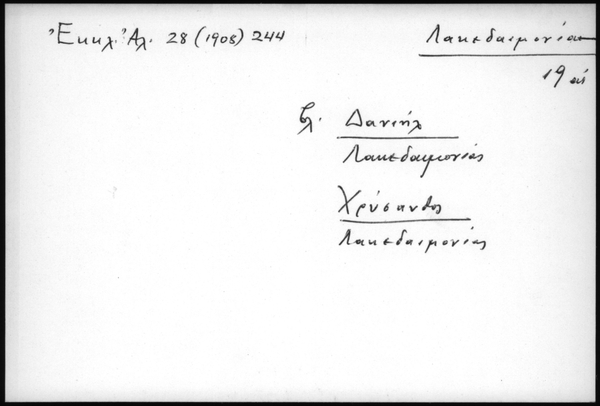 Ἐκκλ. Ἀλ. 28 (1908) 244
Λακεδαιμονίας
19 αἰ
βλ. Δανιήλ
Λακεδαιμονίας
Χρύσανθος
Λακεδαιμονίας